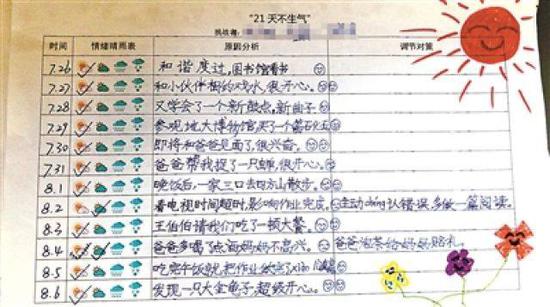 "21天不生气"
挑战者:
时间 情绪晴雨表 原因分析 调节对策
7.26 和谐度过,图书馆看书
7.27 和小伙伴相约戏水,很开心。
7.28 又学会了一个新鼓点,新曲子
7.29 参观地大博物馆买了个
7.30 即将和爸爸见面了,很兴奋。
7.31 爸爸帮我捉了一只蝉,很开心。
8.1 晚饭后,一家三口去四方山散步。
8.2 看电视时间超时,影响作业完成。 主动cheng认错误,多做一篇阅读。
8.3 王伯伯请我们吃了一顿大餐。
8.4 爸爸多喝了点酒妈妈不高兴。 爸爸泡茶给妈妈赔礼。
8.5 吃完午饭就把作业做完了
8.6 发现一只大金龟子,超级开心。